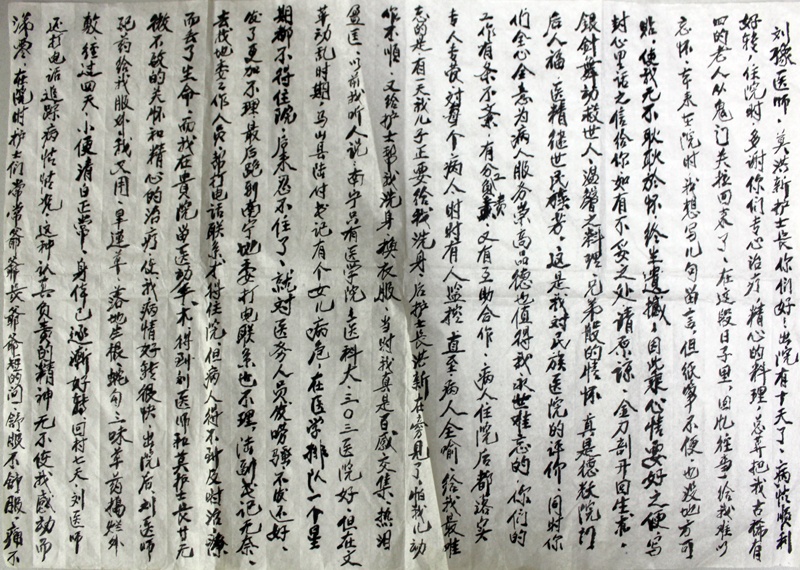 刘豫医师、莫洪新护士长你们好：出院有十天了，病情顺利
好转，住院时多谢你们专心治疗，精心的料理，总算把我古稀有
四的老人从鬼门关抢回来了。在这段日子里，回忆经当给我难以
忘怀，本来在院时我想写几句留言，但纸笔不便也没地方可
贴，使我无不耿耿於怀、终生遗憾，因此乘心情要好之便，写
封心里话之信给你如有不妥之处请原谅。金刀剖开回生术，
银针舞动救世人，温馨之料理，兄弟般的情怀，真是德赦院门
后人福，医精继世民族芳。这是我对民族医院的评价，同时你
们全心全意为病人服务崇高品德也值得我永世难忘的，你们的
工作有条不紊，有分红责，又有互助合作，病人住院后都落实
专人专责对每个病人时时有人监控，直至病人全喻。给我最难
忘的是有一天我儿子正要给我洗身，后护士长洪新在旁见了怕我儿动
作不顺，又给护士帮我洗身换衣服，当时我真是百感交集，热泪
盈匡，以前我听人说，南宁只有医学院，医科大，三0三医院好，但在文
革动乱时期，马山县陆付书记有个女儿病危，在医学排队一个星
期都不得住院，后来忍不住了，就对医务人员发唠骚不发还好，
发了更加不理，最后跑到南宁地委打电联系也不理，陆到书记无奈，
去找地委工作人员，帮打电话联系才得住院但病人得不到及时治疗
而丢了生命。而我在贵院留医动手术，得到刘医师和莫护士长廿无
微不致的关怀和精心的治疗，使我病情好转很快，出院后刘医师
配药给我服外，我又用：旱莲草、落地生根、蝇句三味草药捣烂外
敷，经过四天，小便清白正常，身体已逐渐好转，回村七天，刘医师
还打电话追踪病情情况。这种认真负责的精神无不使我感动而
涕零，在院时护士们常常爷爷长爷爷短的问，舒服不舒服，痛不